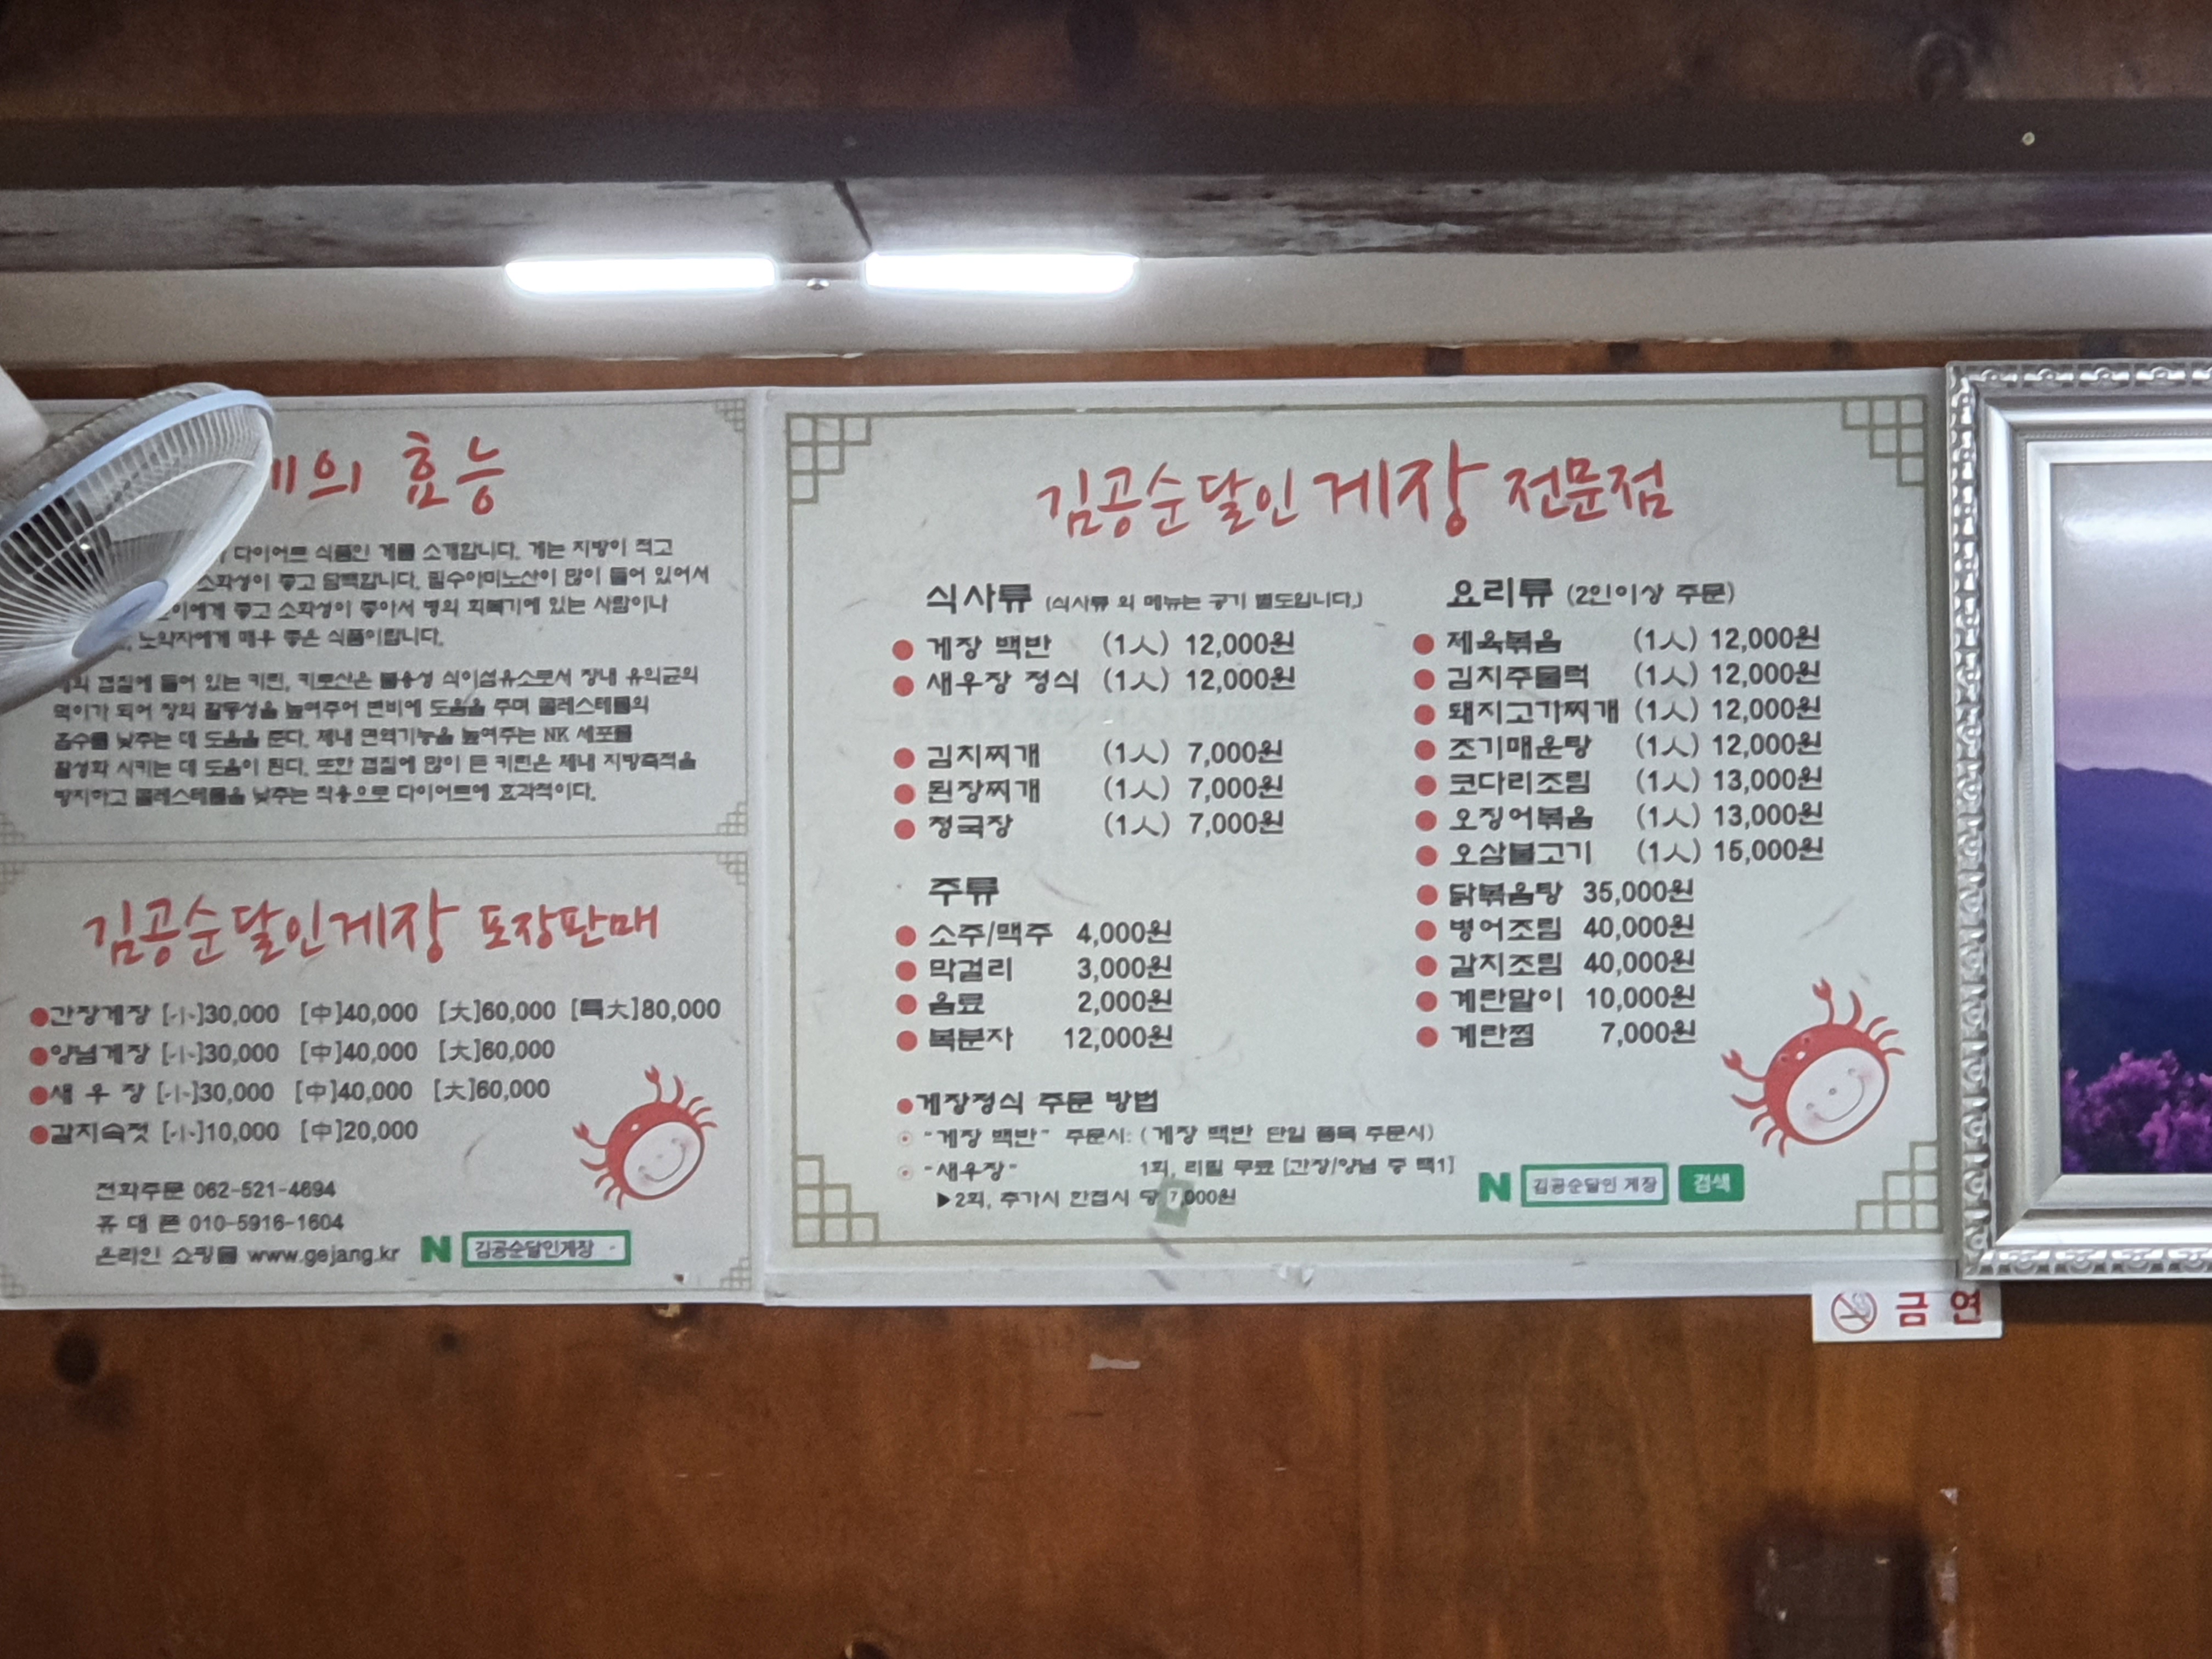 의 효능
다이어트 식품인 게를 소개합니다. 게는 지방이 적고
소화성이 좋고 담백합니다. 필수아미노산이 많이 들어 있어서
이에게 좋고 소화성이 좋아서 병의 회복기에 있는 사람이나
노약자에게 매우 좋은 식품이랍니다.
껍질에 들어 있는 키틴, 키토산은 불용성 식이섬유소로서 장내 유익균의
먹이가 되어 장의 활동성을 높여주어 변비에 도움을 주며 콜레스테롤의
흡수를 낮추는 데 도움을 준다. 체내 면역기능을 높여주는 NK 세포를
활성화 시키는 데 도움이 된다. 또한 껍질에 많이 든 키틴은 체내 지방축적을
방지하고 콜레스테롤을 낮추는 작용으로 다이어트에 효과적이다.
김공순달인게장 포장판매
간장게장 [小]30,000 [中]40,000 [大]60,000 [특大]80,000
양념게장 [小]30,000 [中]40,000 [大]60,000
새 우 장 [小]30,000 [中]40,000 [大]60,000
갈치속젓 [小]10,000 [中]20,000
전화주문 062-521-4694
휴 대 폰 010-5916-1604
온라인 쇼핑몰 www.gejang.kr
N 김공순달인게장
김공순달인게장 전문점
식사류 (식사류 외 메뉴는 공기 별도입니다.)
게장 백반 (1人) 12,000원
새우장 정식 (1人) 12,000원
김치찌개 (1人) 7,000원
된장찌개 (1人) 7,000원
청국장 (1人) 7,000원
주류
소주/맥주 4,000원
막걸리 3,000원
음료 2,000원
복분자 12,000원
요리류 (2인이상 주문)
제육볶음 (1人) 12,000원
김치주물럭 (1人) 12,000원
돼지고기찌개 (1人) 12,000원
조기매운탕 (1人) 12,000원
코다리조림 (1人) 13,000원
오징어볶음 (1人) 13,000원
오삼불고기 (1人) 15,000원
닭볶음탕 35,000원
병어조림 40,000원
갈치조림 40,000원
계란말이 10,000원
계란찜 7,000원
게장정식 주문 방법
"게장 백반" 주문시: (게장 백반 단일 품목 주문시)
"새우장" 1회, 리필 무료 [간장/양념 중 택1]
▶2회, 추가시 한접시 당 7,000원
N 김공순달인 게장 검색
금 연